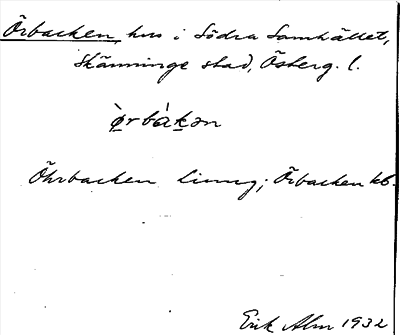 Örbacken, hus i Södra Samhället,
Skänninge stad, Österg. l.
ò̱rbàḵən
Öhrbacken Linng; Örbacken kb.
Erik Alm 1932